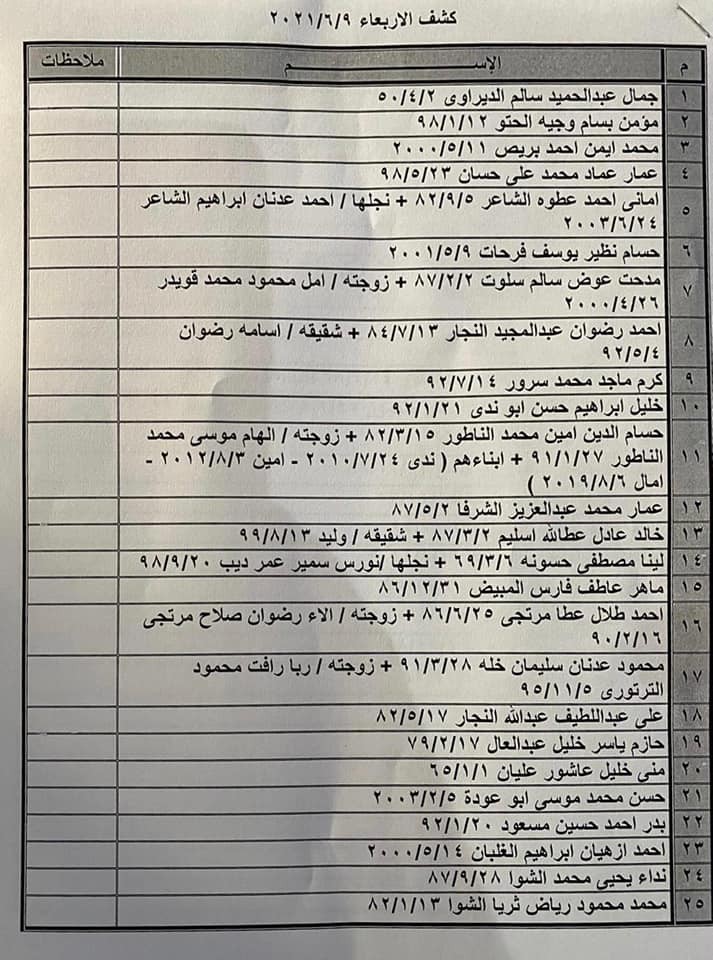 كشف الاربعاء ٢٠٢١/٦/٩
م الإســـــــــــــم ملاحظات
١ جمال عبدالحميد سالم الديراوى ٥٠/٤/٢
٢ مؤمن بسام وجيه الحتو ٩٨/١/١٢
٣ محمد ايمن احمد بريص ٢٠٠٠/٥/١١
٤ عمار عماد محمد على حسان ٩٨/٥/٢٣
٥ امانى احمد عطوه الشاعر ٨٢/٩/٥ + نجلها / احمد عدنان ابراهيم الشاعر
٢٠٠٣/٦/٢٤
٦ حسام نظير يوسف فرحات ٢٠٠١/٥/٩
٧ مدحت عوض سالم سلوت ٨٧/٢/٢ + زوجته / امل محمود محمد قويدر
٢٠٠٠/٤/٢٦
٨ احمد رضوان عبدالمجيد النجار ٨٤/٧/١٣ + شقيقه / اسامه رضوان
٩٢/٥/٤
٩ كرم ماجد محمد سرور ٩٢/٧/١٤
١٠ خليل ابراهيم حسن ابو ندى ٩٢/١/٢١
١١ حسام الدين امين محمد الناطور ٨٢/٣/١٥ + زوجته / الهام موسى محمد
الناطور ٩١/١/٢٧ + ابناءهم ( ندى ٢٠١٠/٧/٢٤ - امين ٢٠١٢/٨/٣ -
امال ٢٠١٩/٨/٦ )
١٢ عمار محمد عبدالعزيز الشرفا ٨٧/٥/٢
١٣ خالد عادل عطالله اسليم ٨٧/٣/٢ + شقيقه / وليد ٩٩/٨/١٣
١٤ لينا مصطفى حسونه ٦٩/٣/٦ + نجلها /نورس سمير عمر ديب ٩٨/٩/٢٠
١٥ ماهر عاطف فارس المبيض ٨٦/١٢/٣١
١٦ احمد طلال عطا مرتجى ٨٦/٦/٢٥ + زوجته / الاء رضوان صلاح مرتجى
٩٠/٢/١٦
١٧ محمود عدنان سليمان خله ٩١/٣/٢٨ + زوجته / ربا رافت محمود
الترتورى ٩٥/١١/٥
١٨ على عبداللطيف عبدالله النجار ٨٢/٥/١٧
١٩ حازم ياسر خليل عبدالعال ٧٩/٢/١٧
٢٠ منى خليل عاشور عليان ٦٥/١/١
٢١ حسن محمد موسى ابو عودة ٢٠٠٣/٢/٥
٢٢ بدر احمد حسين مسعود ٩٢/١/٢٠
٢٣ احمد ازهيان ابراهيم الغلبان ٢٠٠٠/٥/١٤
٢٤ نداء يحيى محمد الشوا ٨٧/٩/٢٨
٢٥ محمد محمود رياض ثريا الشوا ٨٢/١/١٣